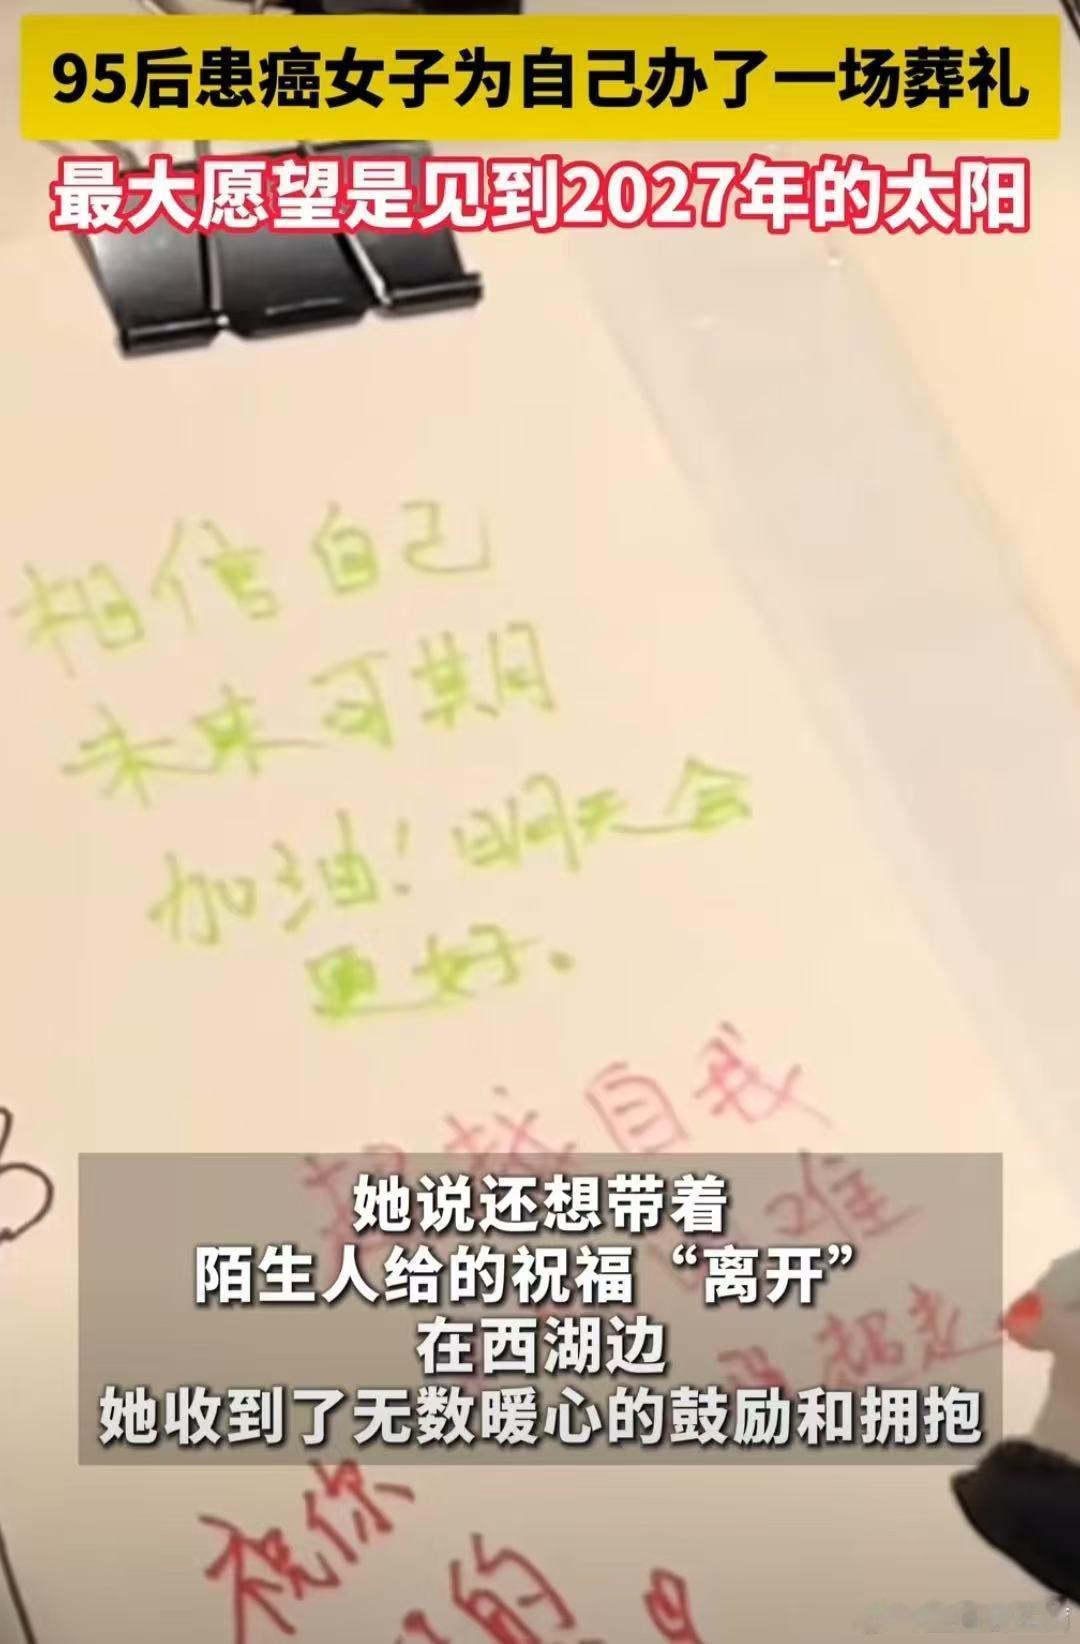 95后患癌女子为自己办了一场葬礼
最大愿望是见到2027年的太阳
相信自己
未来可期
加油！明天会
更好。
超越自我
难
她说还想带着
陌生人给的祝福“离开”
在西湖边
她收到了无数暖心的鼓励和拥抱
祝你
的